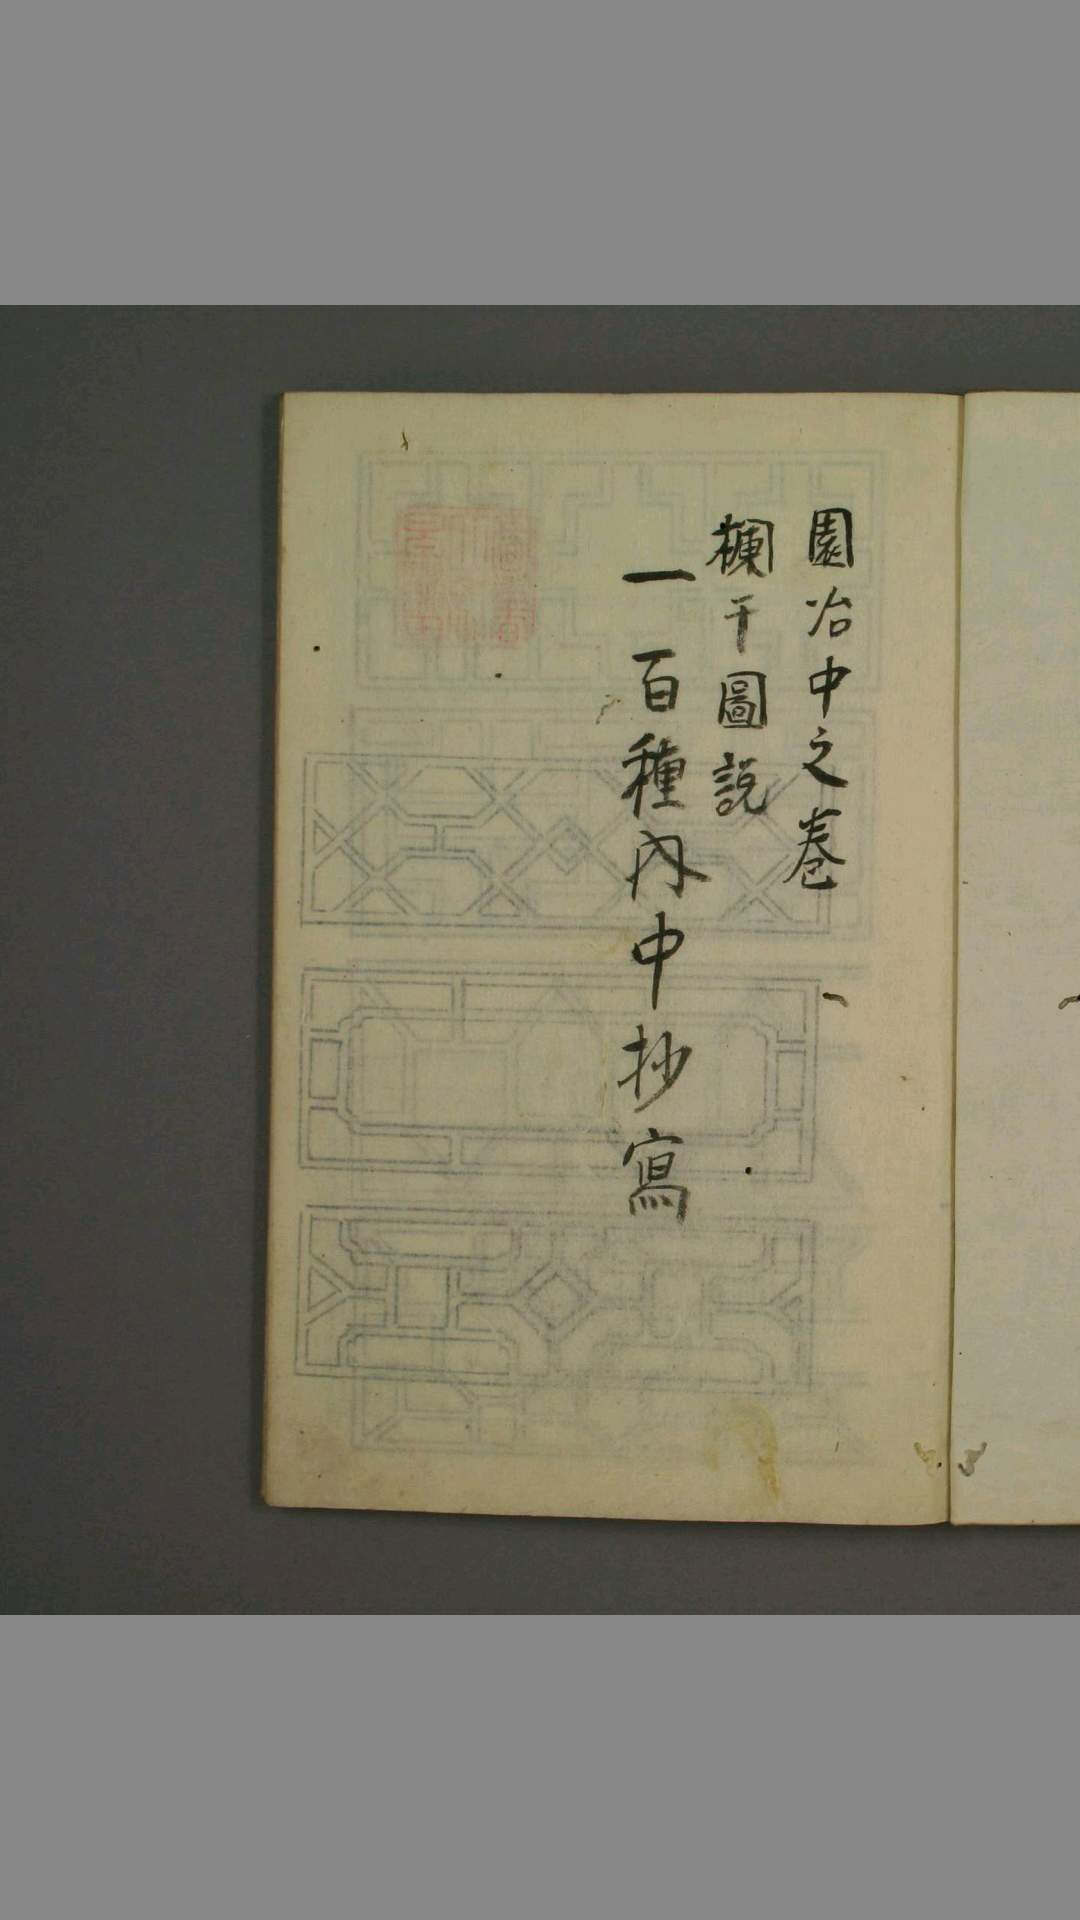 園冶中之巻
欄干圖説
一百種内中抄寫